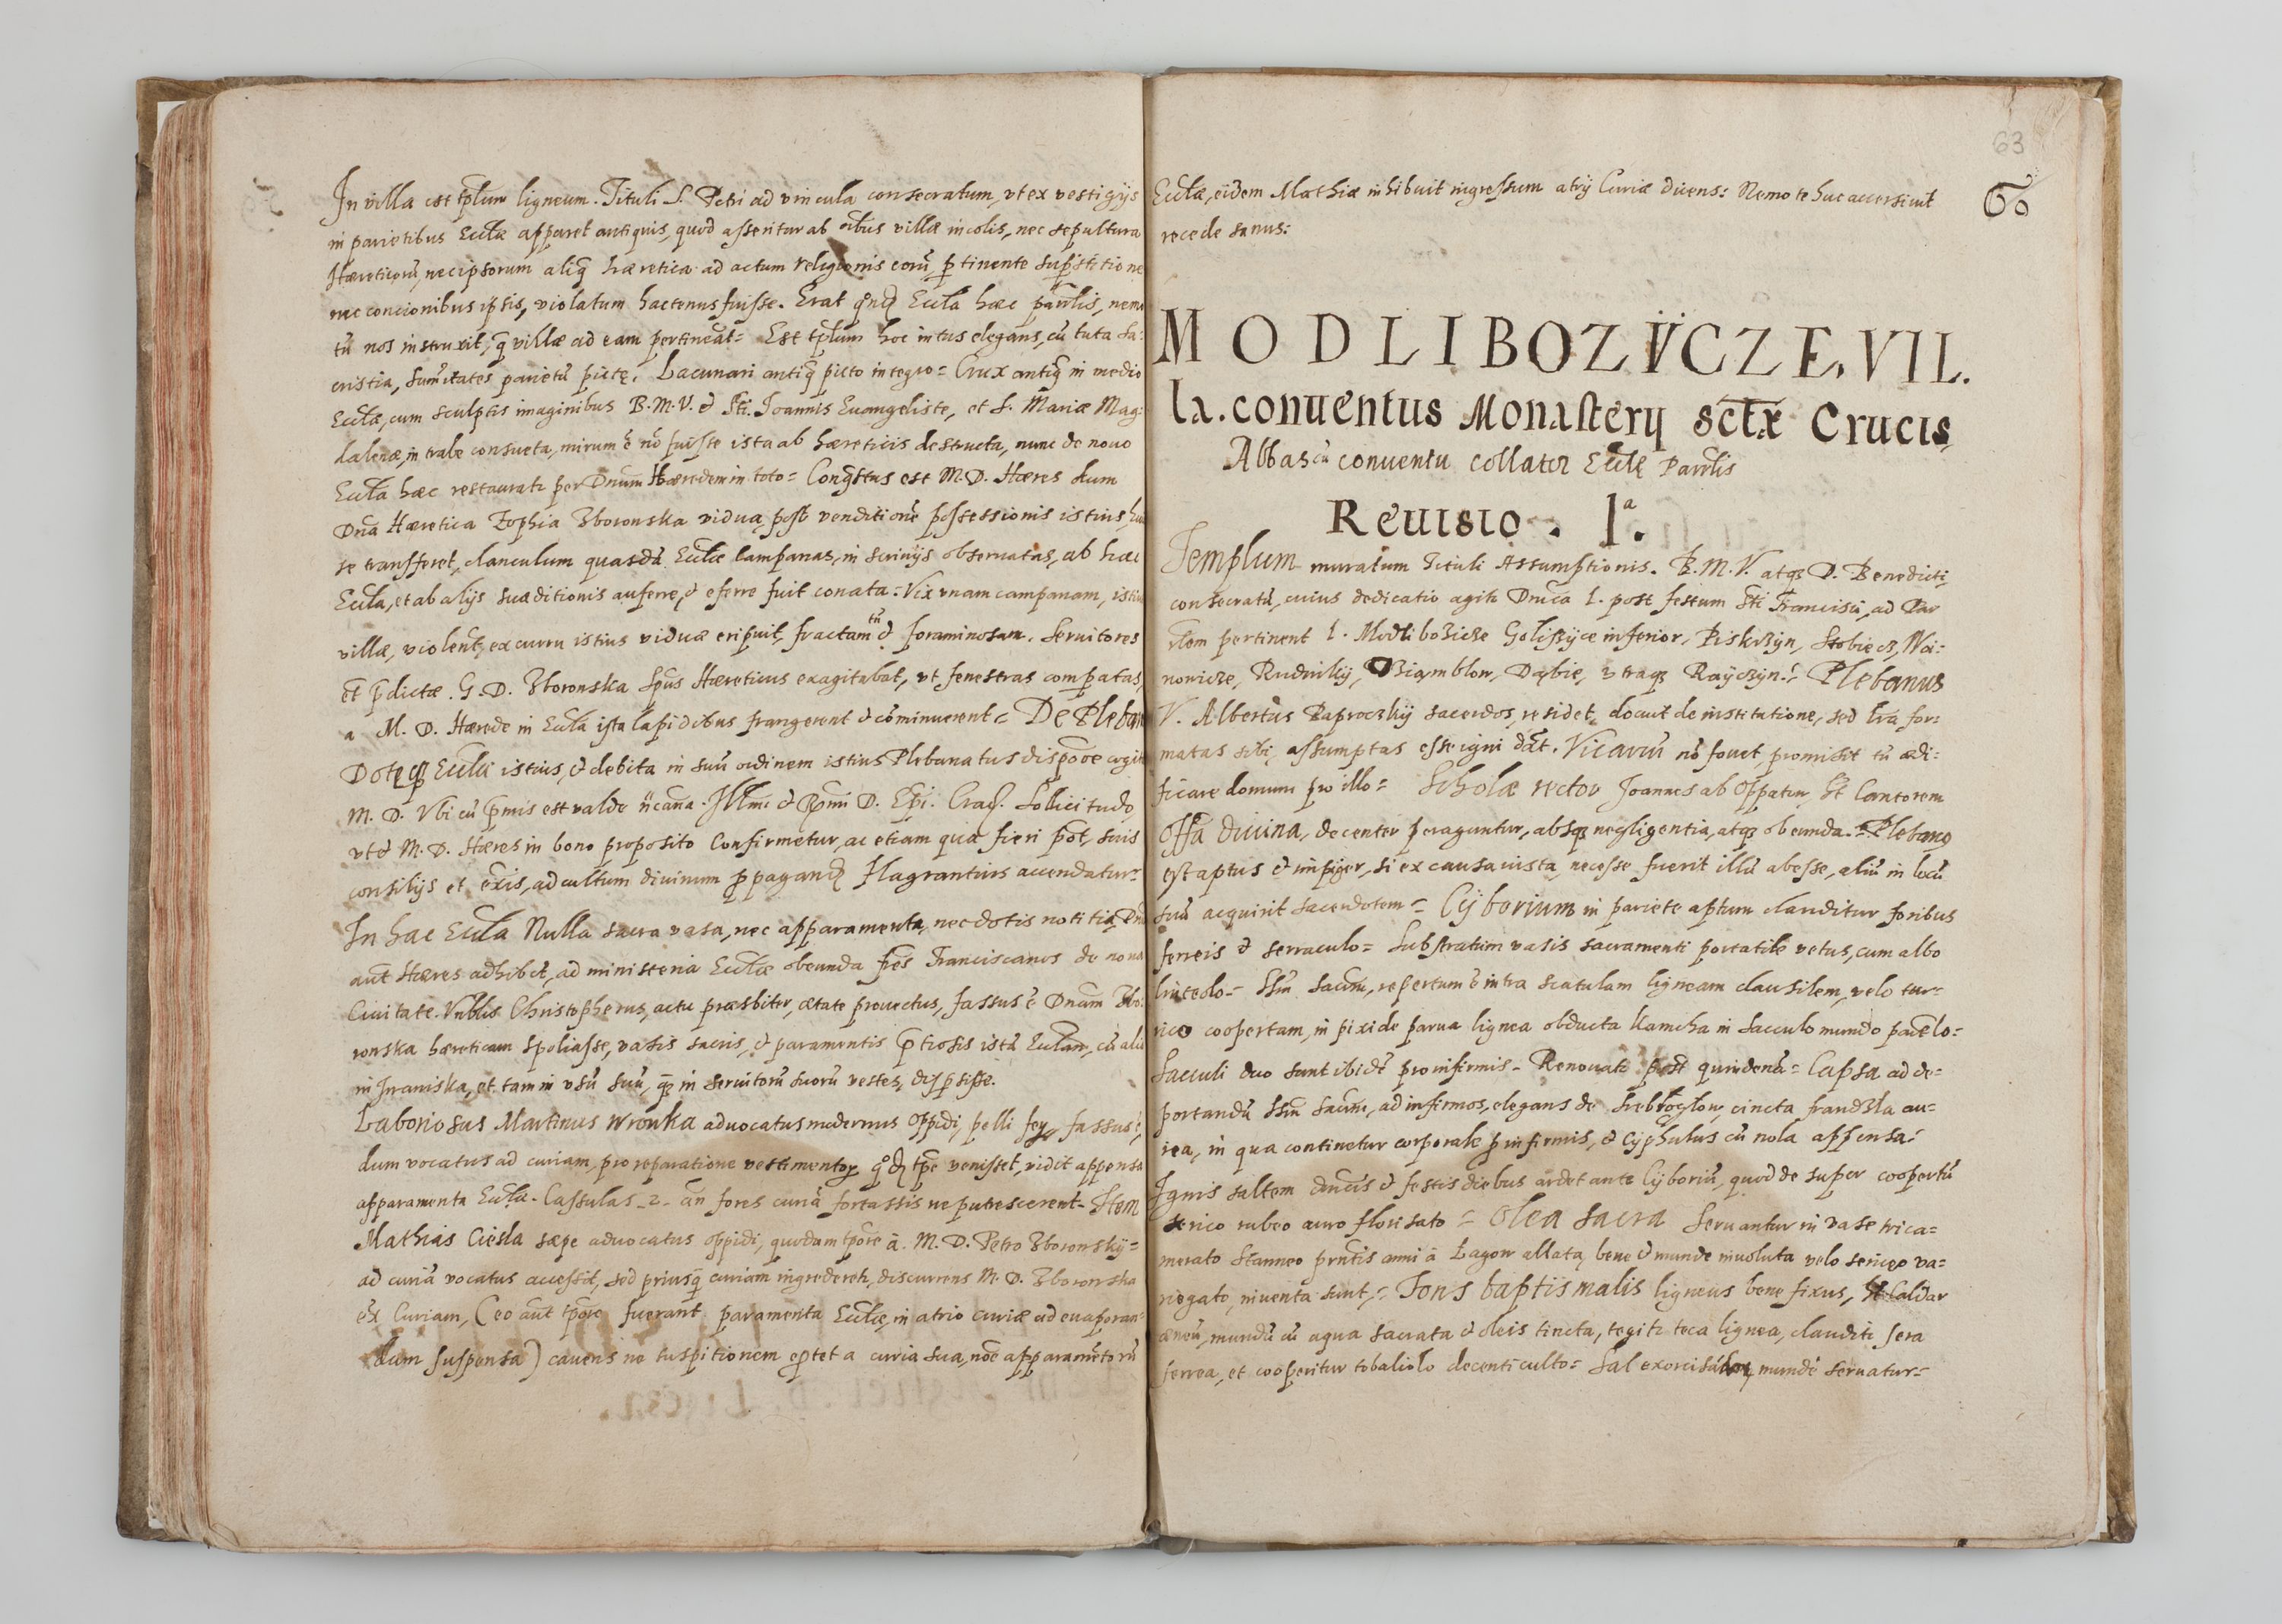 In villa est templum ligneum. Tituli S. Petri ad vincula consecratum, vt ex vestigijs
in parietibus Ecclæ apparet antiquis, quod asseritur ab oibus villæ incolis, nec sepultura
Hæreticorũ, nec ipsorum aliq̃ hæretica ad actum religionis eorũ ptinente supstitione
nec concionibus ipsis, violatum hactenus fuisse. Erat Eccla hæc parãlis, nemo
tñ nos instruxit, q̃ villæ ad eam pertineãt = Est tplum hoc intus elegans, cũ tuta sa:
cristia, sum̃itates parietũ pictę, Lacunari antiq̃ picto integro = Crux antiq̃ in medio
Ecclæ, cum sculptis imaginibus B. M. V. & Sti. Joannis Euangeliste, et S. Mariæ Mag:
dalenæ, in trabe consueta, mirum ẽ nõ fuisse ista ab hæreticis destructa, nunc de nouo
Eccla hæc restauratr per Dnum Hæredem in toto = Conq̃stus est M. D. Hæres dum
Dna Hæretica Zophia Zborowska vidua, post venditionẽ possessionis istius
se transferet, clanculum quasdã Ecclæ campanas, in scrinijs obseruatas, ab hac
Eccla, et ab alijs suæ ditionis auferre, & eferre fuit conata: Vix vnam campanam, istius
villæ, violentr, ex curru istius viduæ eripuit, fractam tñ & foraminosam. Seruitores
et p̃dictæ. G. D. Zborowska Spũs Hæreticus exagitabat, vt fenestras compatas,
a M. D. Hærede in Eccla ista lapidibus frangerent & cõminuerent = De Pleban
Dotę q Eccla istius, & debita in suũ ordinem istius Plebanatus dispõre cogit
M. D. Vbi cũ p̃mis est valde Illmi & Rmi D. Epi. Crac. Sollicitudo,
vt & M. D. Hæres in bono proposito Confirmetur, ac etiam quæ fieri põt, suis
consilijs et ad cultum diuinum ppagand flagrantius accendatur =
In hac Eccla Nulla sacra vasa, nec apparamenta, nec dotis notitia, Dns
aũt Hæres adhibet, ad ministeria Ecclæ obeunda fr̃es Franciscanos de noua
Ciuitate. Vnblis Christopherus, actu præsbiter, ætate prouectus, fassus ẽ Dnam Zbo:
rowska hæreticam spoliasse, vasis sacris, & paramentis p̃tiosis istã Ecclam, cũ alia
in Jwaniska, et tam in vsũ suũ, q̃ in seruitorũ suorũ vestes, dispsisse.
Laboriosus Martinus Wronka aduocatus modernus Oppidi, pelli fex, fassus ẽ,
dum vocatus ad curiam, pro reparatione vestimentor qd tpe venisset, vidit appensa
apparamenta Ecclæ. Cassulas - 2 - an fores curiæ fortassis ne putrescerent - Item
Mathias Ciesla sæpe aduocatus oppidi, quodam tpore ã. M. D. Petro Zborowskÿ =
ad curiã vocatus accessit, sed priusq̃ curiam ingrederetr, discurrens M. D. Zborowska
ex Curiam, (eo aũt tpore fuerant paramenta Ecclæ, in atrio curiæ ad euaporan:
dum suspensa) cauens ne suspitionem eptet a curia sua, noẽ apparamẽtorũ
63
60
Ecclæ, eidem Mathiæ inhibuit ingressum atrij Curiæ dicens: Nemo te huc accersiuit
recede sanus:
MODLIBOZŸCZE, VIL.
la. conuentus Monasterij sctæ Crucis,
Abbas cũ conuentu collator Ecclę Parõlis
Reuisio. 1ª.
Templum muratum Tituli Assumptionis. B. M. V. atq D. Benedicti
consecratũ, cuius dedicatio agitr Dnica 1. post festum Sti Francisci, ad Par
ãlem pertinent 1. Modlibozicze Goliszÿce inferior, Piskrzyn, Stobiecz, Woi:
nowicze, Rudnikÿ, Wziąmblow, Dąbie, vtraq Raÿczyn. = Plebanus
V. Albertus Paproczkÿ sacerdos, residet, docuit de institutione, sed lr̃a for:
matas sibi assumptas esse igni dãt. Vicariũ nõ fouet, promisit tñ ædi:
ficare domum pro illo = Scholæ rector Joannes ab Oppatow St Cantorem
Offa Diuina, decenter peraguntur, absq negligentia, atq obeunda. = Plebanq
est aptus & impiger, si ex causa iusta, necesse fuerit illũ abesse, aliũ in locũ
suũ acquirit sacerdotem = Cÿborium in pariete aptum clauditur foribus
ferreis & serraculo = Substratum vasis sacramenti portatile vetus, cum albo
linteolo = Ssm̃ Sacrm̃, repertum ẽ intra scatulam ligneam clausilem, velo tur=
rico coopertam, in pixide parua lignea obducta kamcha in sacculo mundo pacẽlo =
Sacculi duo sunt ibidẽ pro infirmis - Renouatr post quindenã = Capsa ad de=
portandũ Ssm̃ Sacrm̃, ad infirmos, elegans de srebroglow, cincta frandzla au=
rea, in qua continetur corporale p infirmis, & Cÿphulus cũ nola appensa.
Ignis saltem dñicis & festis diebus ardet ante Cÿboriũ, quod de super coopertũ
serico rubeo auro florisato = Olea sacra Seruantur in vase trica=
merato stanneo prñtis anni ã Łagow allata, bene & munde inuoluta velo sericeo va=
riegato, inuenta sunt. = Fons baptismalis ligneus bene fixus, St Caldar
æneũ, mundũ cũ aqua sacrata & oleis tincta, tegitr teca lignea, clauditr sera
ferrea, et cooperitur tobaliolo decenti culto = Sal mundè seruatur =